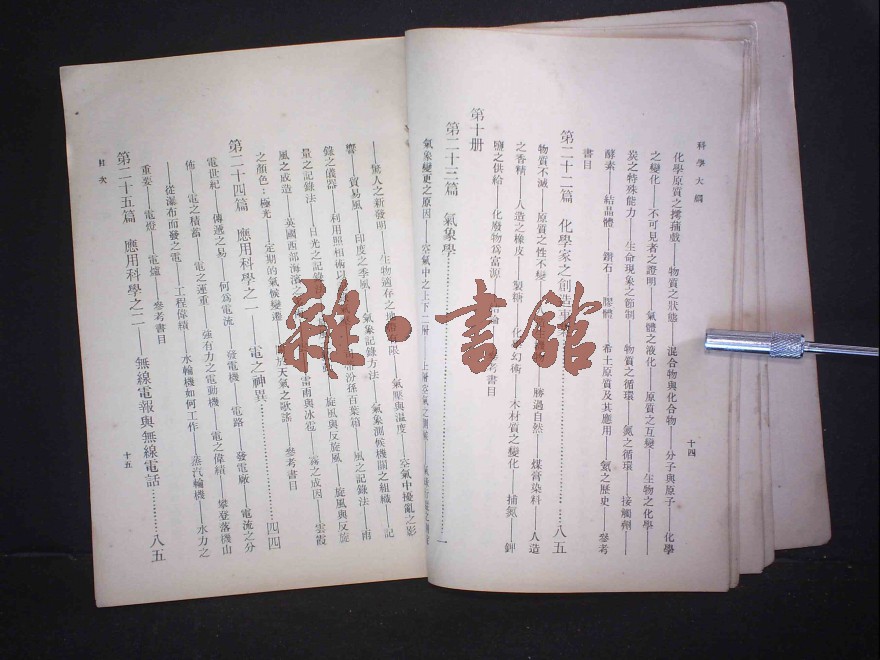 科學大綱
十四
化學原質之撐菢戲——物質之狀態——混合物與化合物——分子與原子——化學
之變化——不可見者之證明——氣體之液化——原質之互變——生物之化學——
炭之特殊能力——生命現象之節制——物質之循環——氮之循環——接觸劑——
酵素——結晶體——鑽石——膠體——希土原質及其應用——氦之歷史——參考
書目
第二十二篇 化學家之創造事…………八五
物質不滅——原質之性不變——勝過自然——煤膏染料——人造
之香精——人造之橡皮——製糖——化 幻術——木材質之變化——捕氮——鉀
鹽之供給——化廢物為富源 參考書目
第十册
第二十三篇 氣象學…………一
氣象變更之原因——空氣中之上下二層
——驚人之新發明——生物適存之 限——氣壓與溫度——空氣中擾亂之影
響——貿易風——印度之季風——氣象記錄方法——氣象測候機關之組織——記
錄之儀器——利用照相術以 汾孫百葉箱——風之記錄法——雨
量之記錄法——日光之記錄 旋風與反旋風——旋風與反旋
風之成造——英國西部海濱之 雷雨與冰雹——霧之成因——雲霞
之顏色：極光——定期的氣候變遷 於天氣之歌謠——參考書目
第二十四篇 應用科學之一——電之神異…………四四
電世紀——傳遞之易——何為電流——發電機——電路——發電廠——電流之分
佈——電之積蓄——電之運重——強有力之電動機——電之偉績——攀登落機山
——從瀑布而發之電——工程偉績——水輪機如何工作——蒸汽輪機——水力之
重要——電燈——電爐——參考書目
第二十五篇 應用科學之二——無線電報與無線電話…………八五
目次
十五
雜·書館